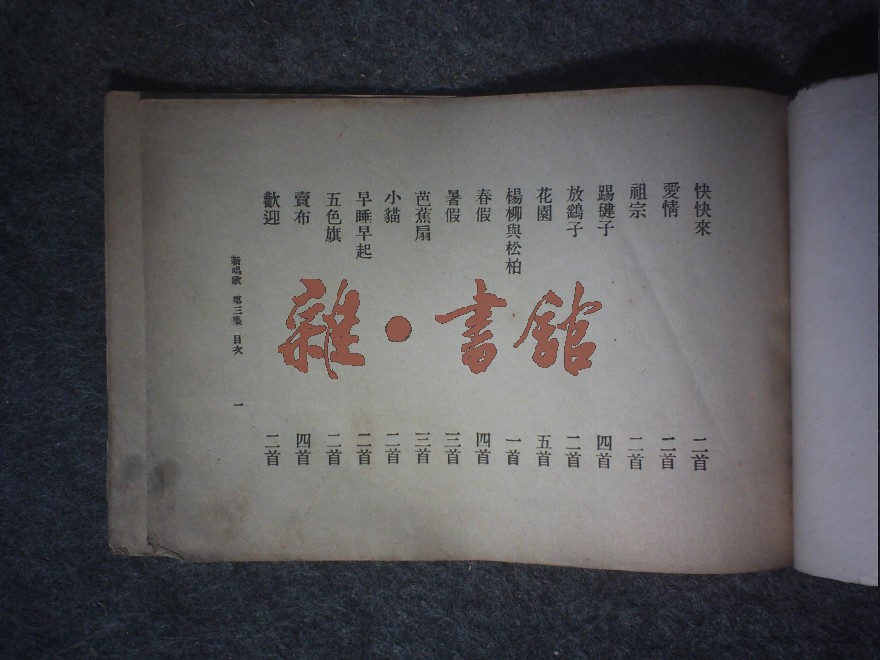 快快來 二首
愛情 二首
祖宗 二首
踢毽子 四首
放鷂子 二首
花園 五首
楊柳與松柏 一首
春假 四首
暑假 三首
芭蕉扇 三首
小貓 二首
早睡早起 二首
五色旗 二首
賣布 四首
歡迎 二首
新唱歌 第三集 目次 一
雜·書館